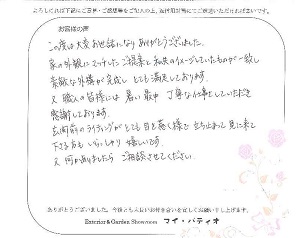 よろしければ下記にご意見・ご感想等をご記入の上、返信用封筒にてご返送いただければ幸いです。
お客様の声
この度は大変お世話になり ありがとうございました。
家の外観にマッチしたご提案と 私共のイメージしていたものが一致し
素敵な外構が完成し とても満足しております。
又 職人の皆様には 暑い最中 丁寧な仕事をしていただき
感謝しております。
玄関前のライティングがとても目を惹く様で 立ち止まって見に来て
下さる方も いらっしゃり 嬉しいです。
又 何かありましたら ご相談させてください。
ありがとうございました。今後とも末長いお付き合いを宜しくお願いいたします。
Exterior&Garden Showroom マイ・パティオ